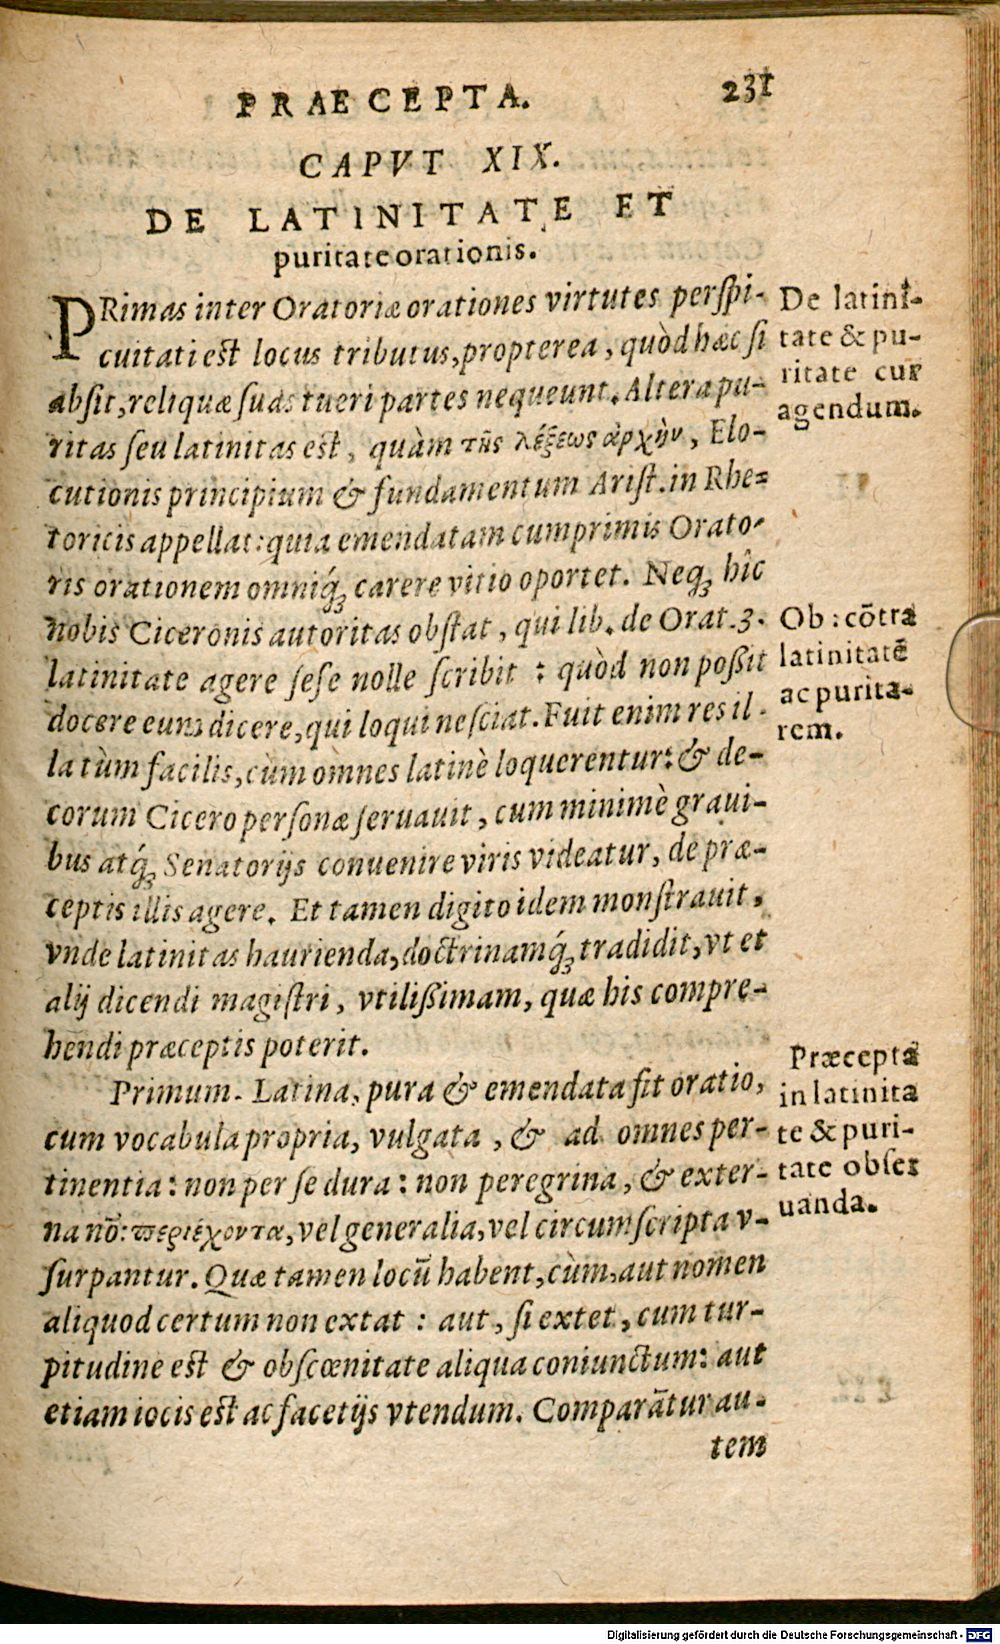 PRAECEPTA. 231
CAPVT XIX.
DE LATINITATE ET
puritate orationis.
PRimas inter Oratoriæ orationes virtutes perspi-
cuitati est locus tributus, propterea, quòd hæc si
absit, reliquæ suas tueri partes nequeunt. Altera pu-
ritas seu latinitas est, quàm τῆς λέξεως ἀρχὴν, Elo-
cutionis principium & fundamentum Arist. in Rhe-
toricis appellat: quia emendatam cumprimis Orato-
ris orationem omniq́; carere vitio oportet. Neq; hîc
nobis Ciceronis autoritas obstat, qui lib. de Orat. 3.
latinitate agere sese nolle scribit: quòd non poßit
docere eum dicere, qui loqui nesciat. Fuit enim res il-
la tùm facilis, cùm omnes latinè loquerentur: & de-
corum Cicero personæ seruauit, cum minimè graui-
bus atq́; Senatorijs conuenire viris videatur, de præ-
ceptis illis agere. Et tamen digito idem monstrauit,
vnde latinitas haurienda, doctrinamq́; tradidit, vt et
alij dicendi magistri, vtilißimam, quæ his compre-
hendi præceptis poterit.
Primum. Latina, pura & emendata fit oratio,
cum vocabula propria, vulgata, & ad omnes per-
tinentia: non per se dura: non peregrina, & exter-
na nō: περιέχοντα, vel generalia, vel circumscripta v-
surpantur. Quæ tamen locū habent, cùm, aut nomen
aliquod certum non extat: aut, si extet, cum tur-
pitudine est & obscœnitate aliqua coniunctum: aut
etiam iocis est ac facetijs vtendum. Comparātur au-
tem
De latini-
tate & pu-
ritate cur
agendum.
Ob: cōtra
latinitatē
ac purita-
tem.
Præcepta
in latinita
te & puri-
tate obser
uanda.
Digitalisierung gefördert durch die Deutsche Forschungsgemeinschaft - DFG